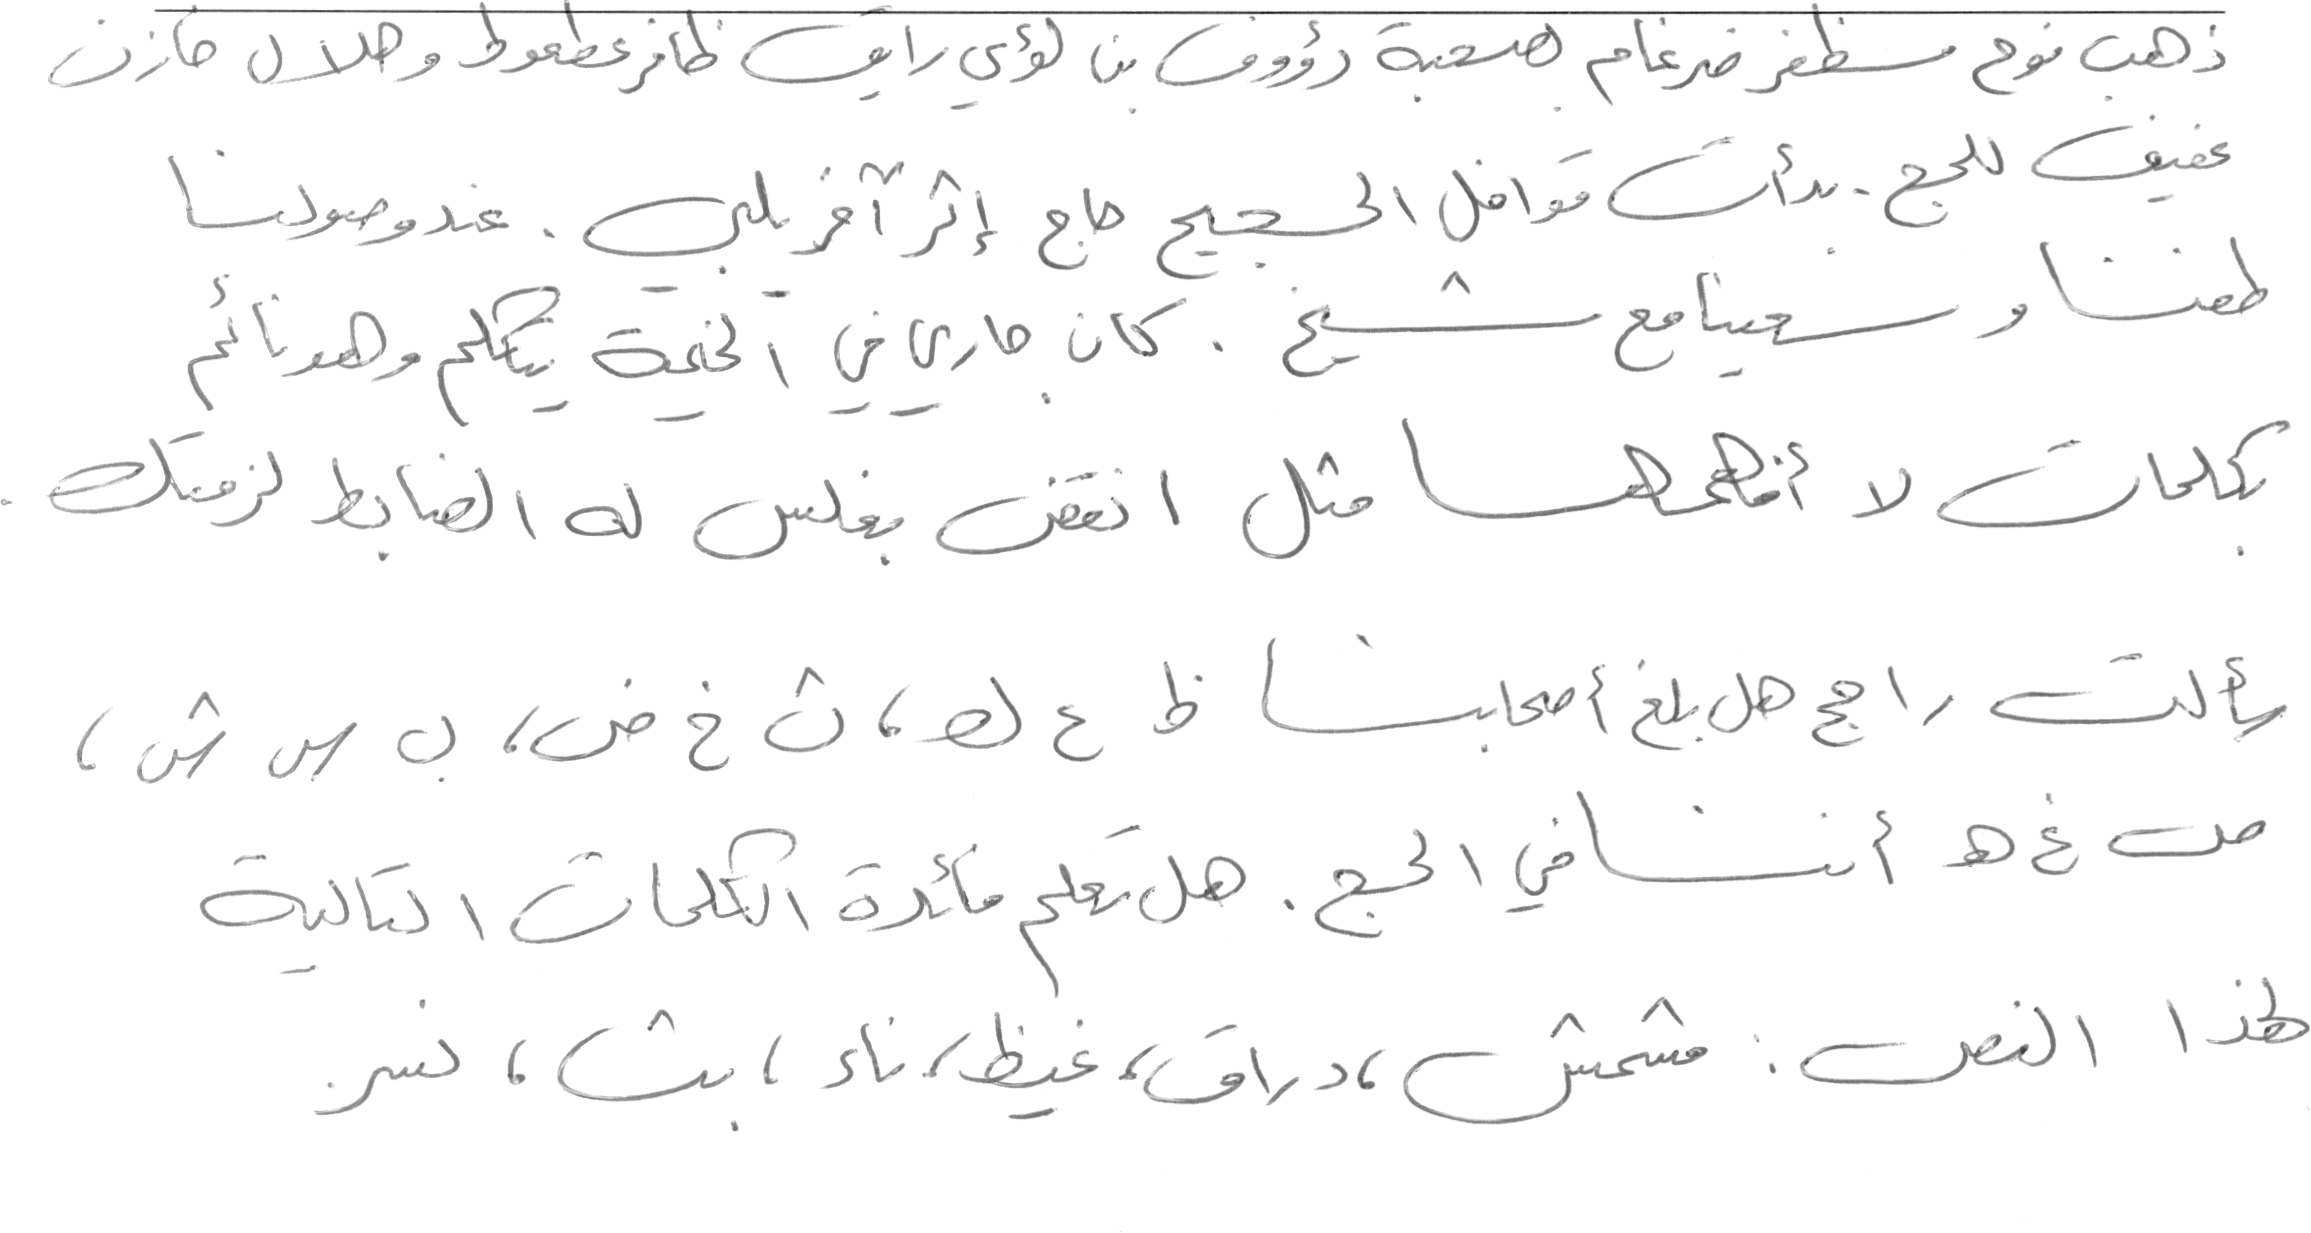 ذهب نوح مظفر ضرغام بصحبة رؤوف بن لؤي رايق ظافر عطعوط وهلال خازن
عفيف للحج. بدأت قوافل الحجيج حاج إثر آخر يلبي. عند وصولنا
طفنا وسعينا مع شيخ. كان جاري في الخيمة يتكلم وهو نائم
بكلمات لا أفهمها مثل انقض بغلس له الضابط لزمتك.
سألت راجح هل بلغ أصحابنا ظ ع ك، ث خ ض، ب س ش،
ص غ ه أننا في الحج. هل تعلم فائدة الكلمات التالية
لهذا النص: مشمش، دراق، غيظ، ناء، بث، نسر.